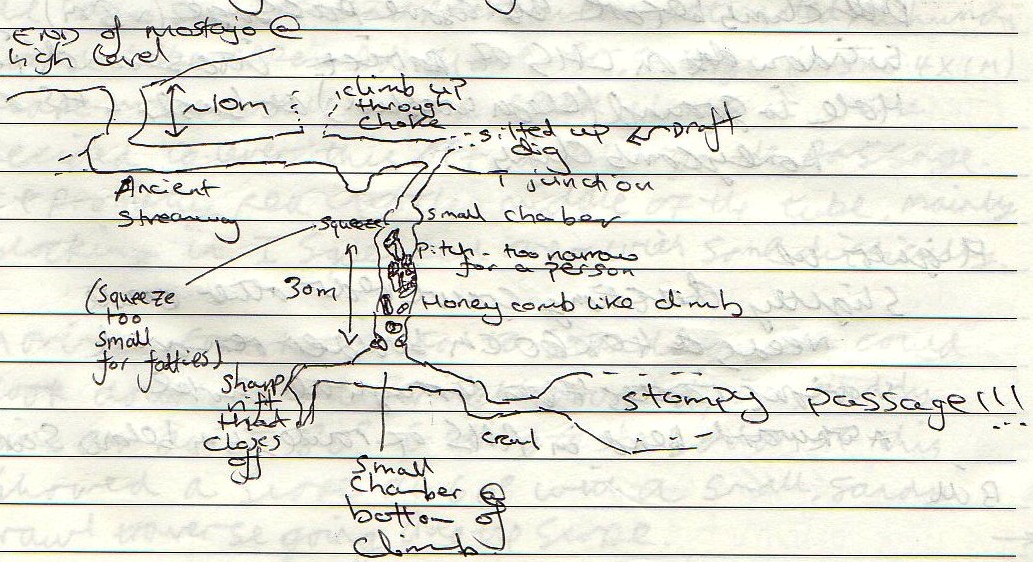 END of Mostajo @
high level
~10m
climb up
through
choke
silted up ← Draft
dig
T junction
Ancient
streamway
squeeze
small chaber
Pitch - too narrow
for a person
30m
Honey comb like climb
(squeeze
too
small
for fatties)
sharp
rift
that
closes
off
stompy passage!!!
...
crawl
small
chamber @
bottom of
climb